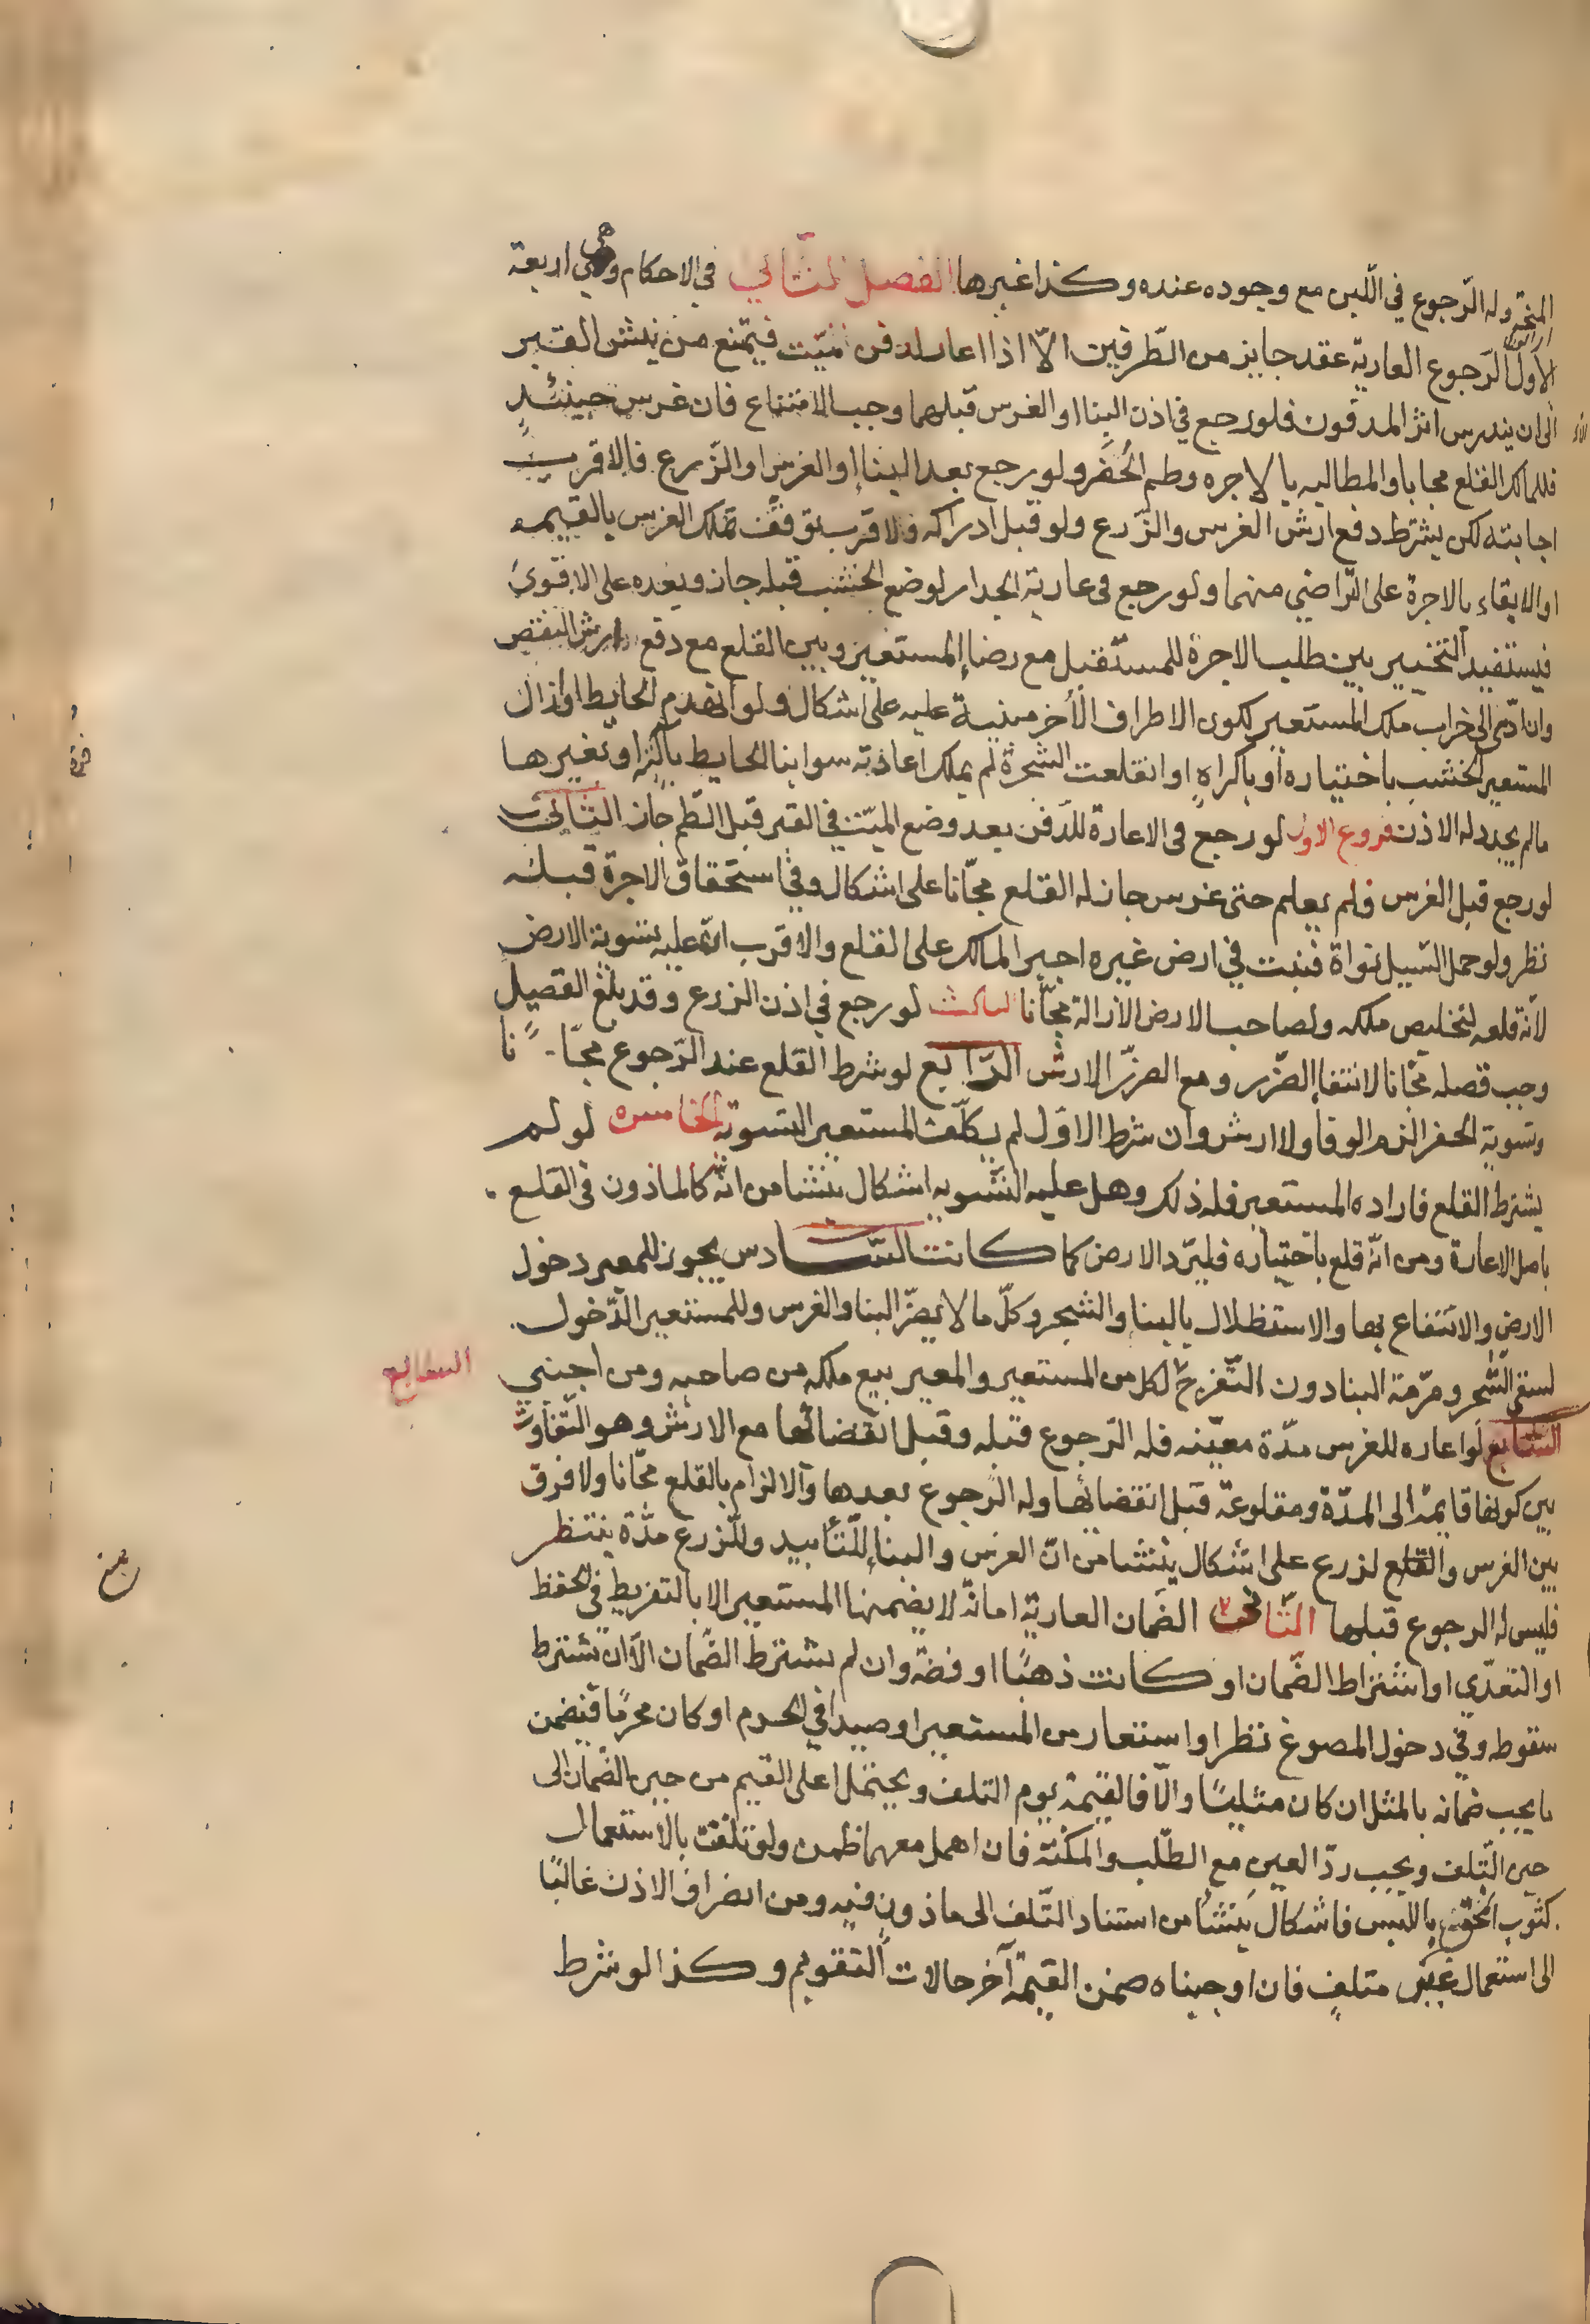 المنحة وله الرّجوع في اللّبن مع وجوده عنده وكذا غيرها الفصل الثّاني في الاحكام وهي اربعة
الاول الرّجوع العاريّة عقد جايز من الطّرفين الاّ اذا اعار لدفن ميّت فيمتنع من نبش القبر
الى ان يندرس اثر المدفون فلو رجع في اذن البنا او الغرس قبلهما وجب الامتناع فان غرس حينئذٍ
فللمالك القلع مجانا والمطالبه بالاجره وطم الحُفَر ولو رجع بعد البناء او الغرس او الزّرع فالاقرب
اجابته لكن يشترط دفع ارش الغرس والزّرع ولو قبل ادراكه والاقرب توقّف تملك الغرس بالقيمه
او الابقاء بالاجرة على التّراضي منهما ولو رجع فى عارية الجدار لوضع الخشب قبله جاز وبعده على الاقوى
فيستفيد التّخيير بين طلب الاجرة للمستقبل مع رضاء المستعير وبين القلع مع دفع ارش النقص
وان ادّى الى خراب ملك المستعير لكون الاطراف الأخر مبنية عليه على اشكال ولو انهدم الحايط او ازال
المستعير الخشب باختياره او باكراهٍ او انقلعت الشجرة لم يملك اعادته سوا بنا الحايط بآلته او بغيرها
ما لم يجدد له الاذن فروع الاول لو رجع فى الاعارة للدّفن بعد وضع الميّت في القبر قبل الطّم جاز الثاني
لو رجع قبل الغرس فلم يعلم حتى غرس جاز له القلع مجّانا على اشكال وفي استحقاق الاجرة قبله
نظر ولو حمل السّيل نواة فنبت في ارض غيره اجبر المالك على القلع والاقرب انّ عليه تسوية الارض
لانّه قلعه لتخليص ملكه ولصاحب الارض الازالة مجّانا الثالث لو رجع في اذن الزرع وقد بلغ القصيل
وجب قصله مجّانا لانتفاء الضّرر ومع الضرّر الارش الرّابع لو شرط القلع عند الرّجوع مجّانًا
وتسوية الحفر الزم الوفا ولا ارش وان شرط الاوّل لم يكلّف المستعير التسوية الخامس لو لم
يشترط القلع فاراده المستعير فله ذلك وهل عليه التّسويه اشكال ينشا من انّه كالماذون فى القلع
باصل الاعارة ومن انّه قلع باختياره فليردّ الارض كما كانت السّادس يجوز للمعير دخول
الارض والانتفاع بها والاستظلال بالبناء والشجر وكلّ ما لا يضرّ البنا والغرس وللمستعير الدّخول
لسقي الشّجر ومرّمة البنا دون التّفرّج لكل من المستعير والمعير بيع ملكه من صاحبه ومن اجنبي
السابع
السّابع لو اعاره للغرس مدّة معيّنه فله الرّجوع قبله وقبل انقضائها مع الارش وهو التّفاوت
بين كونها قايمة الى المدّة ومقلوعة قبل انقضائها وله الرّجوع بعدها والالزام بالقلع مجّانا ولا فرق
بين الغرس والقلع لزرع على اشكال ينشا من انّ الغرس والبناء للتّأبيد وللزّرع مدّة ينتظر
فليس له الرجوع قبلها الثّاني الضّمان العاريّة امانة لا يضمنها المستعير الا بالتفريط في الحفظ
او التعدّي او اشتراط الضّمان او كانت ذهبًا او فضّة وان لم يشترط الضّمان الاّ ان يشترط
سقوطه وفي دخول المصوغ نظر او استعار من المستعير او صيدا في الحرم او كان محرمًا فيضمن
ما يجب ضمانه بالمثل ان كان مثليًا والاّ فالقيمة يوم التلف ويحتمل اعلى القيم من حين الضّمان الى
حين التّلف ويجب ردّ العين مع الطّلب والمكنة فان اهمل معهما ظمن ولو تلفت بالاستعمال
كثوب انمحق باللبس فاشكال ينشأ من استناد التّلف الى ماذون فيه ومن انصراف الاذن غالبًا
الى استعمال غير متلفٍ فان اوجبناه ضمن القيمة آخر حالات التقويم وكذا لو شرط